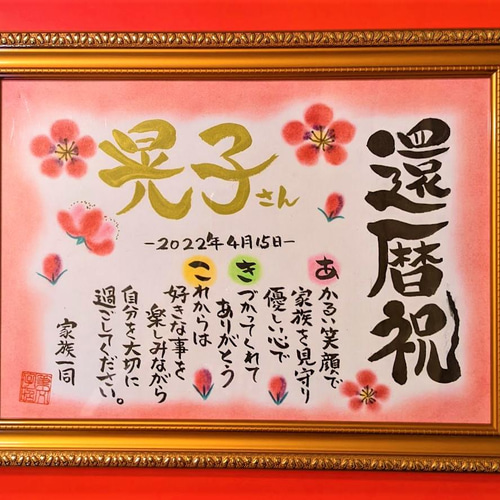 還暦祝
晃子さん
-2022年4月15日-
あかるい笑顔で
家族を見守り
優しい心で
きづかってくれて
ありがとう
これからは
好きな事を
楽しみながら
自分を大切に
過ごしてください。
家族一同